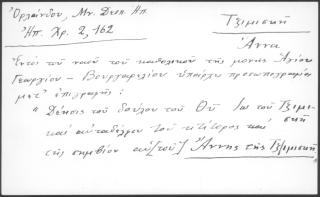 Ὀρλάνδου, Μν. Δεσπ. Ἠπ.
Ἠπ. Χρ. 2, 162
Τζιμισκῆ
Ἄννα
Ἐντὸς τοῦ ναοῦ τοῦ καθολικοῦ τῆς μονῆς Ἁγίου
Γεωργίου - Βουργαρελίου ὑπάρχει προσωπογραφία
μετ' ἐπιγραφῆς:
"Δέησις τοῦ δούλου τοῦ Θῦ Ἰω τοῦ Τζιμι-
σκῆ
καὶ αὐταδέλφου τοῦ κτήτορος καὶ
τῆς συμβίου αὐ[τοῦ] Ἄννης τῆς Τζιμισκῆ